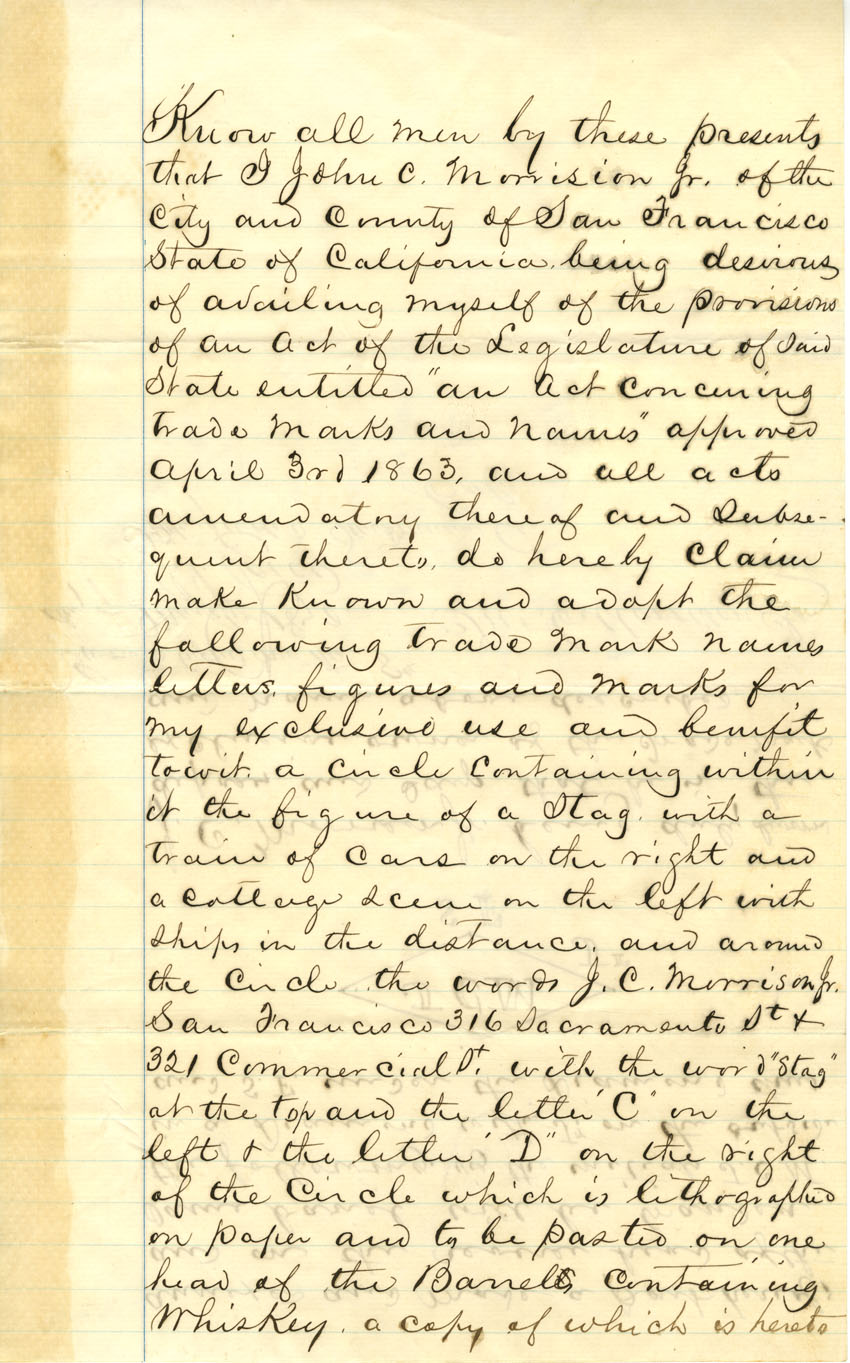 Know all men by these presents
that I John C. Morrision Jr. of the
City and County of San Francisco
State of California, being desirous
of availing myself of the provisions
of an Act of the Legislature of Said
State entitled "an Act Concening
trade Marks and Names" approved
April 3rd 1863, and all acts
amendatory thereof and Subse-
quent thereto, do hereby Claim
Make Known and adopt the
following trade Mark Names
letters, figures and Marks for
my exclusive use and benifit
towit. a Circle Containing within
it the figure of a Stag. with a
train of Cars on the right and
a Cottage scene on the left with
ships in the distance, and around
the Circle the words J. C. Morrison Jr.
San Francisco 316 Sacramento St &
321 Commercial St. with the word "Stag"
at the top and the letter "C" on the
left & the letter "D" on the right
of the Circle which is lithographed
on paper and to be pasted on one
head of the Barrells Containing
Whiskey. a copy of which is hereto